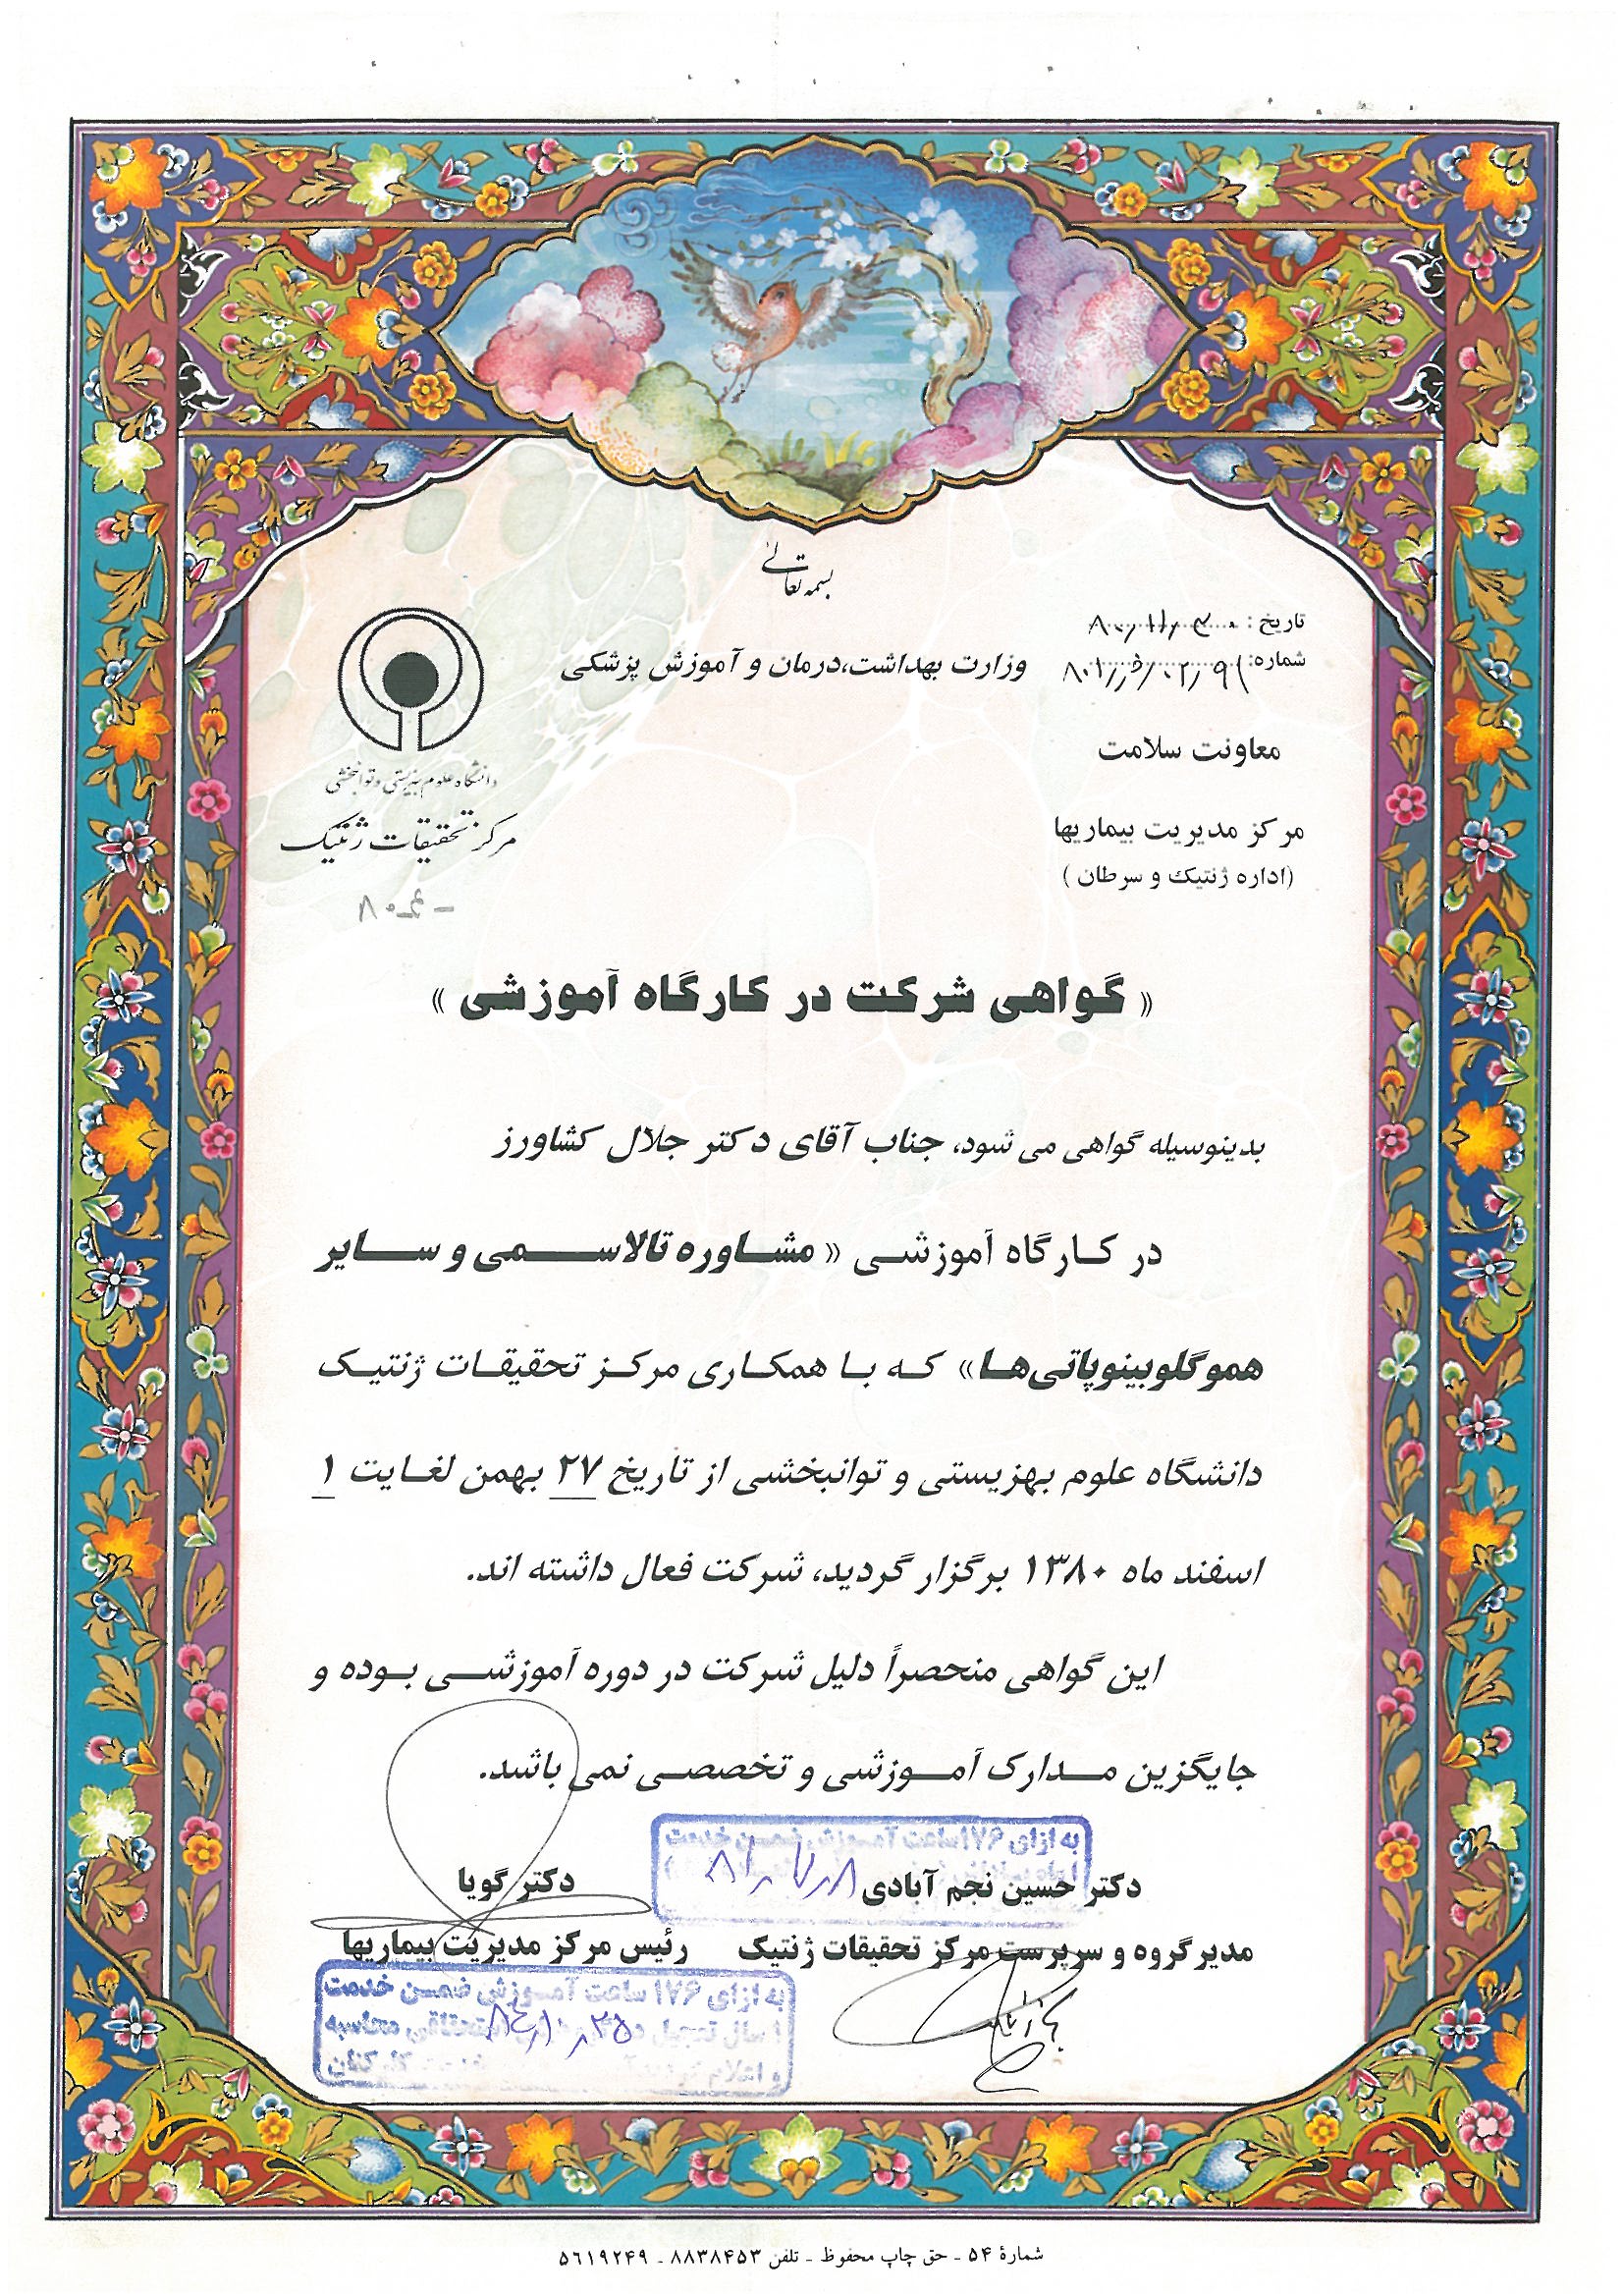 بسمه تعالی
تاریخ :
شماره:
وزارت بهداشت،درمان و آموزش پزشکی
معاونت سلامت
دانشگاه علوم بهزیستی و توانبخشی
مرکز تحقیقات ژنتیک
مرکز مدیریت بیماریها
(اداره ژنتیک و سرطان )
« گواهی شرکت در کارگاه آموزشی »
بدینوسیله گواهی می شود، جناب آقای دکتر جلال کشاورز
در کارگاه آموزشی « مشاوره تالاسمی و سایر
هموگلوبینوپاتی‌ها» که با همکاری مرکز تحقیقات ژنتیک
دانشگاه علوم بهزیستی و توانبخشی از تاریخ ۲۷ بهمن لغایت ۱
اسفند ماه ۱۳۸۰ برگزار گردید، شرکت فعال داشته اند.
این گواهی منحصراً دلیل شرکت در دوره آموزشی بوده و
جایگزین مدارک آموزشی و تخصصی نمی باشد.
به ازای ۱۷۶ ساعت آموزش ضمن خدمت
دکتر حسین نجم آبادی
دکتر گویا
مدیر گروه و سرپرست مرکز تحقیقات ژنتیک
رئیس مرکز مدیریت بیماریها
به ازای ۱۷۶ ساعت آموزش ضمن خدمت
۱ سال تعجیل
شمارهٔ ۵۴ ـ حق چاپ محفوظ ـ تلفن ۸۸۳۸۴۵۳ ـ ۵۶۱۹۲۴۹